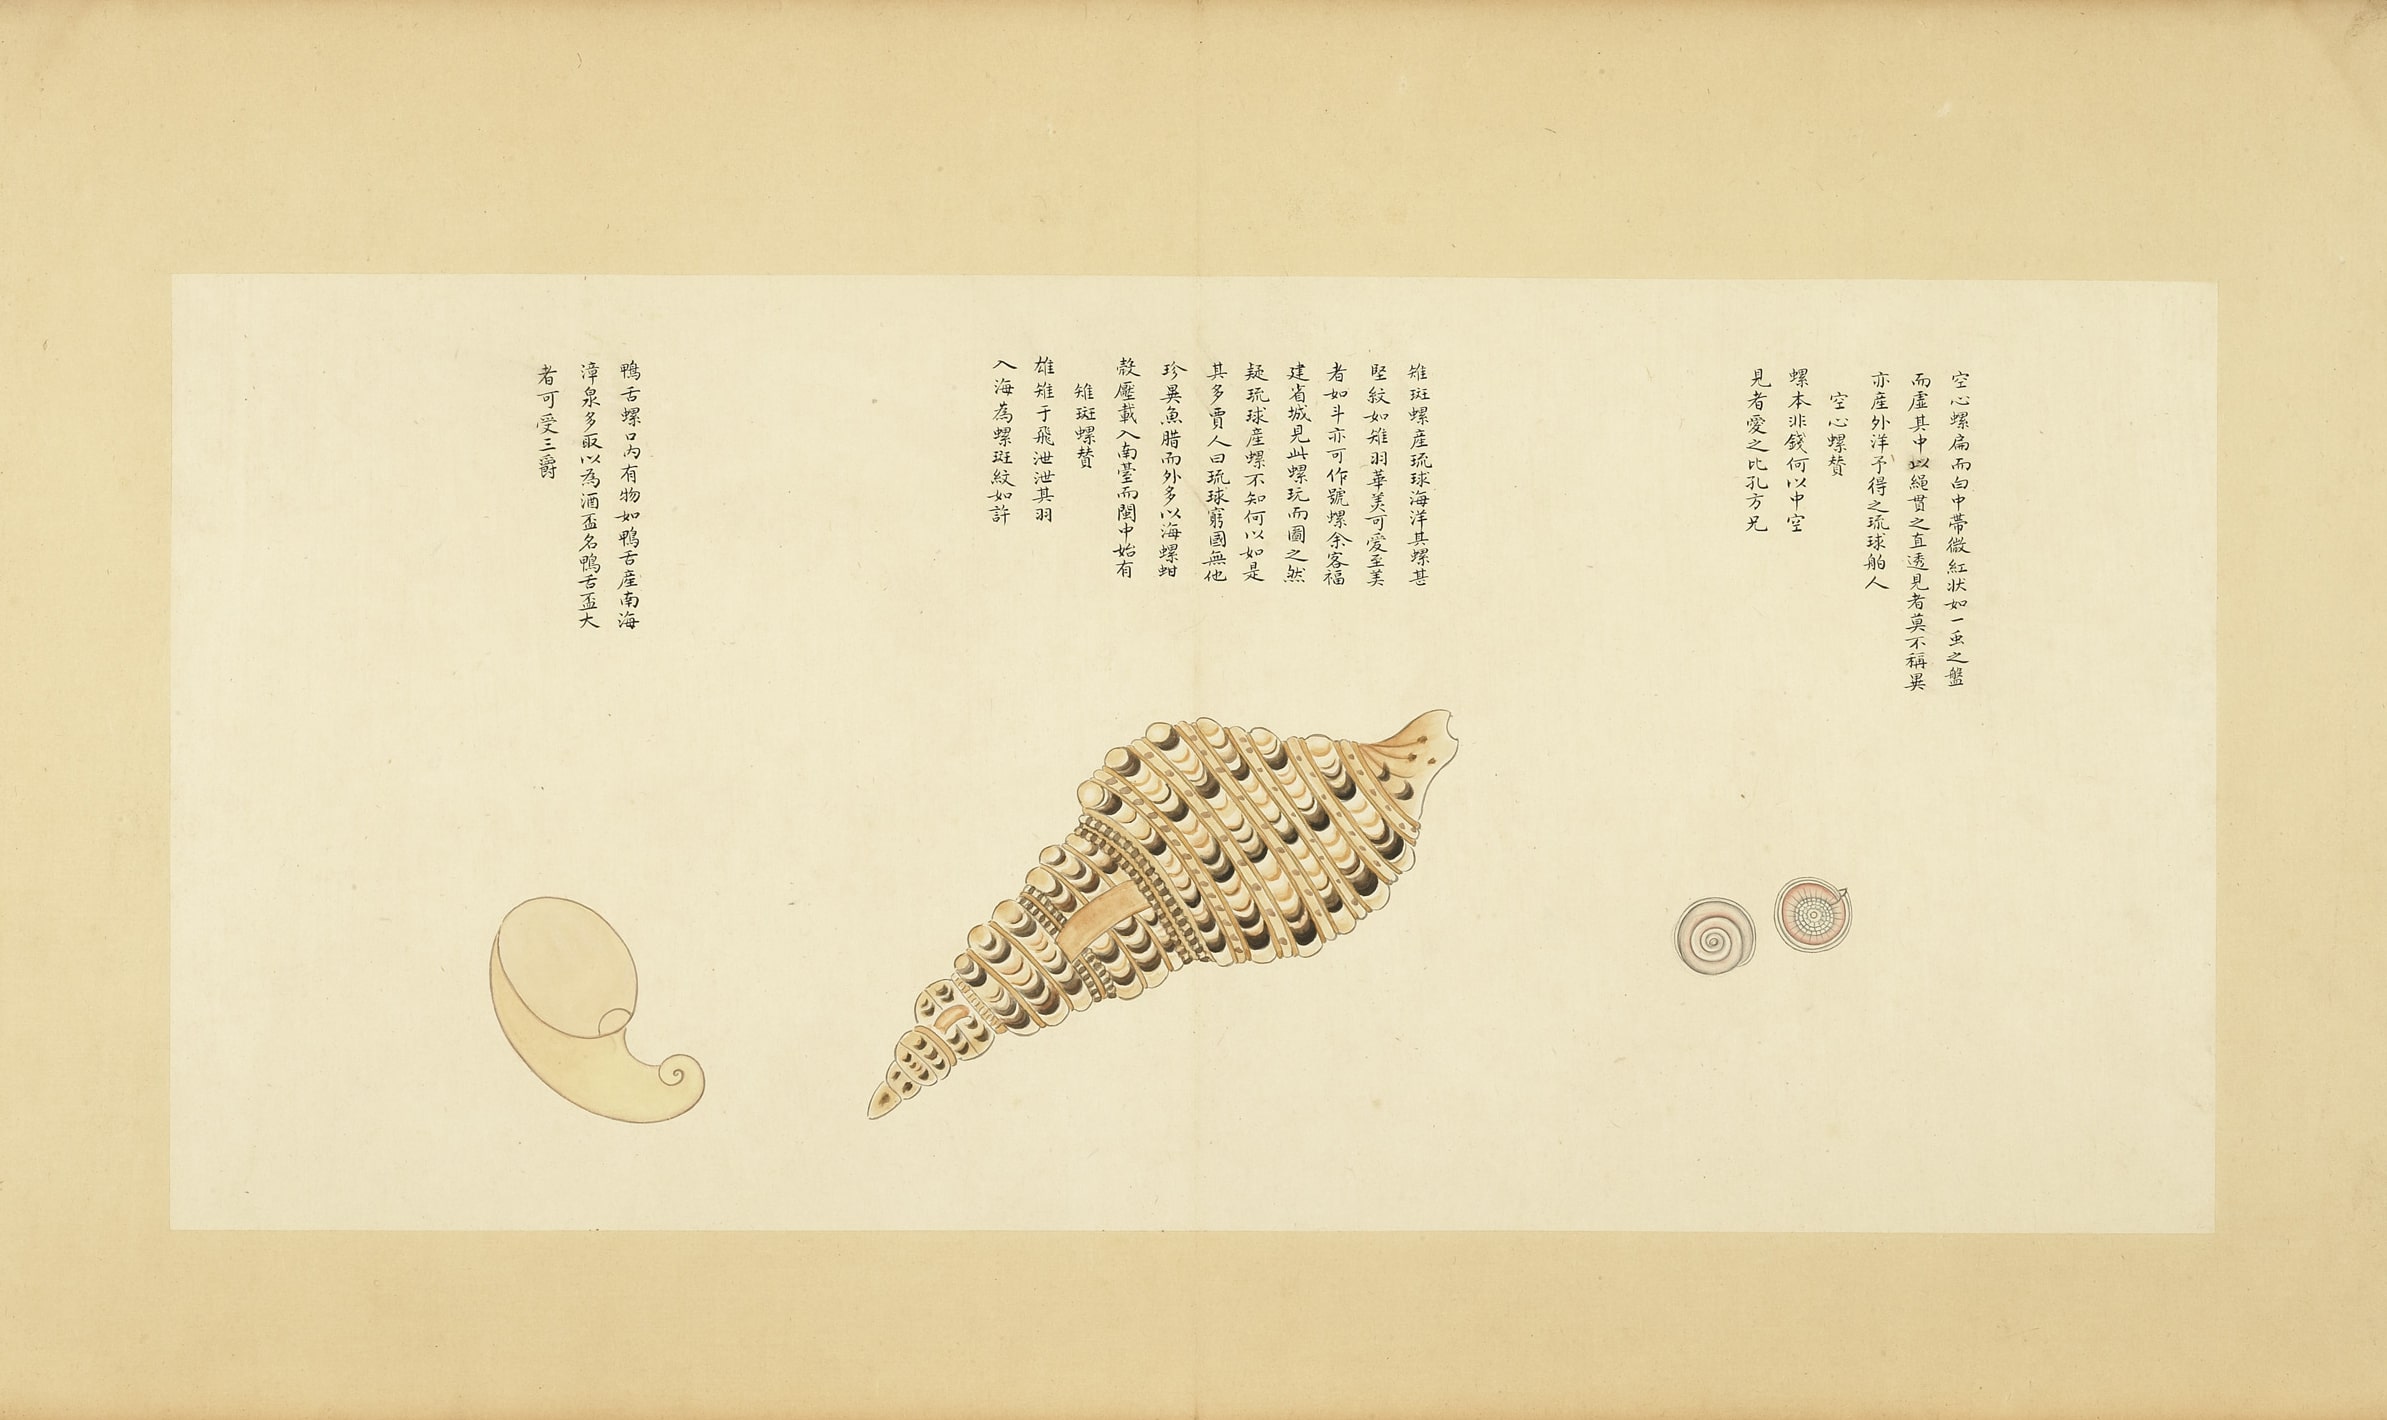 空心螺扁而白中帶微紅狀如一虫之盤
而虛其中以繩貫之直透見者莫不稱異
亦產外洋予得之琉球舶人
空心螺贊
螺本非錢何以中空
見者愛之比孔方兄
雉斑螺產琉球海洋其螺甚
堅紋如雉羽華美可愛至美
者如斗亦可作號螺余客福
建省城見此螺玩而圖之然
疑琉球產螺不知何以如是
其多賈人曰琉球窮國無他
珍異魚腊而外多以海螺蚶
殼壓載入南臺而閩中始有
雉斑螺贊
雄雉于飛泄泄其羽
入海為螺斑紋如許
鴨舌螺口內有物如鴨舌產南海
漳泉多取以為酒盃名鴨舌盃大
者可受三爵